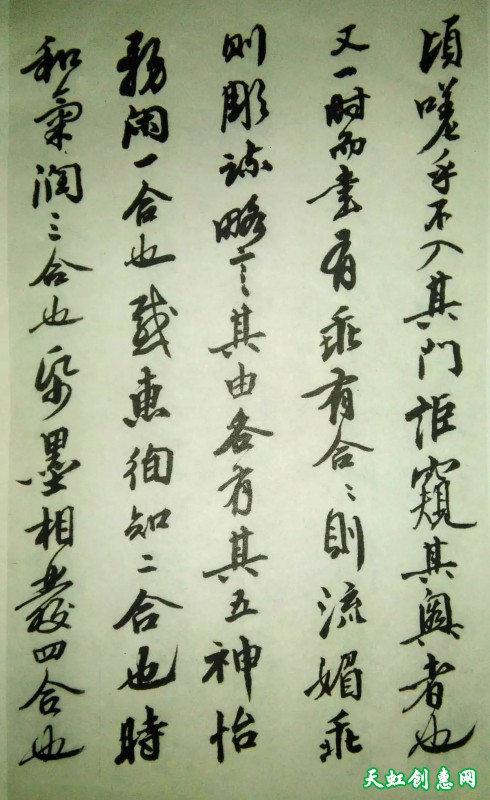 頃嗟乎不入其門詎窺其奧者也
又一時而書有乖有合〻則流媚乖
則彫疏略言其由各有其五神怡
務閑一合也感惠徇知二合也時
和氣潤三合也紙墨相發四合也
天虹创惠网